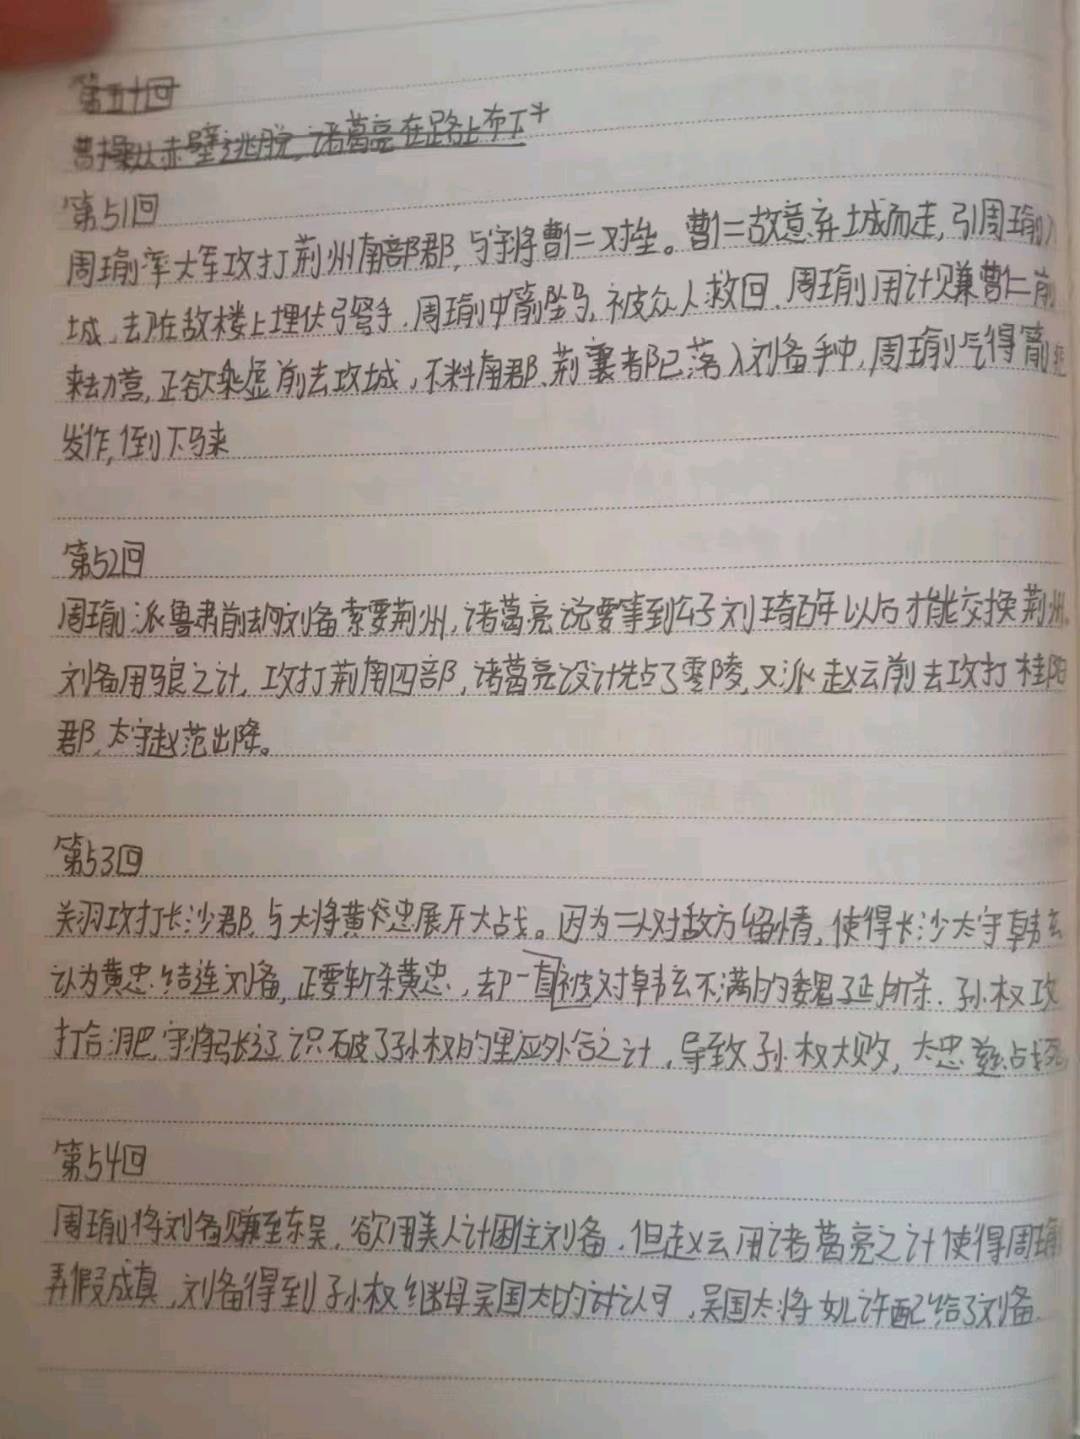 第五十回
曹操从赤壁逃脱,诸葛亮在路上布下
第51回
周瑜率大军攻打荆州南部郡,与守将曹仁对垒。曹仁故意弃城而走,引周瑜入
城,去陆敌楼上埋伏弓弩手.周瑜中箭坠马,被众人救回.周瑜用计赚曹仁前
来劫营,正欲乘虚前去攻城,不料南郡、荆襄都已落入刘备手中,周瑜气得箭
发作,倒下马来
第52回
周瑜派鲁肃前去向刘备索要荆州,诸葛亮说要等到公子刘琦百年以后才能交换荆州.
刘备用马良之计,攻打荆南四部,诸葛亮设计先占了零陵,又派赵云前去攻打桂阳
郡,太守赵范出降。
第53回
关羽攻打长沙郡,与大将黄忠展开大战。因为二人对敌方留情,使得长沙太守韩玄
认为黄忠结连刘备,正要斩杀黄忠,却一直被对韩玄不满的魏延所杀.孙权攻
打合淝,守将张辽识破了孙权的里应外合之计,导致孙权大败,太忠慈战死
第54回
周瑜将刘备赚至东吴,欲用美人计困住刘备.但赵云用诸葛亮之计使得周瑜
弄假成真,刘备得到孙权继母吴国太的认可,吴国太将女儿许配给了刘备.